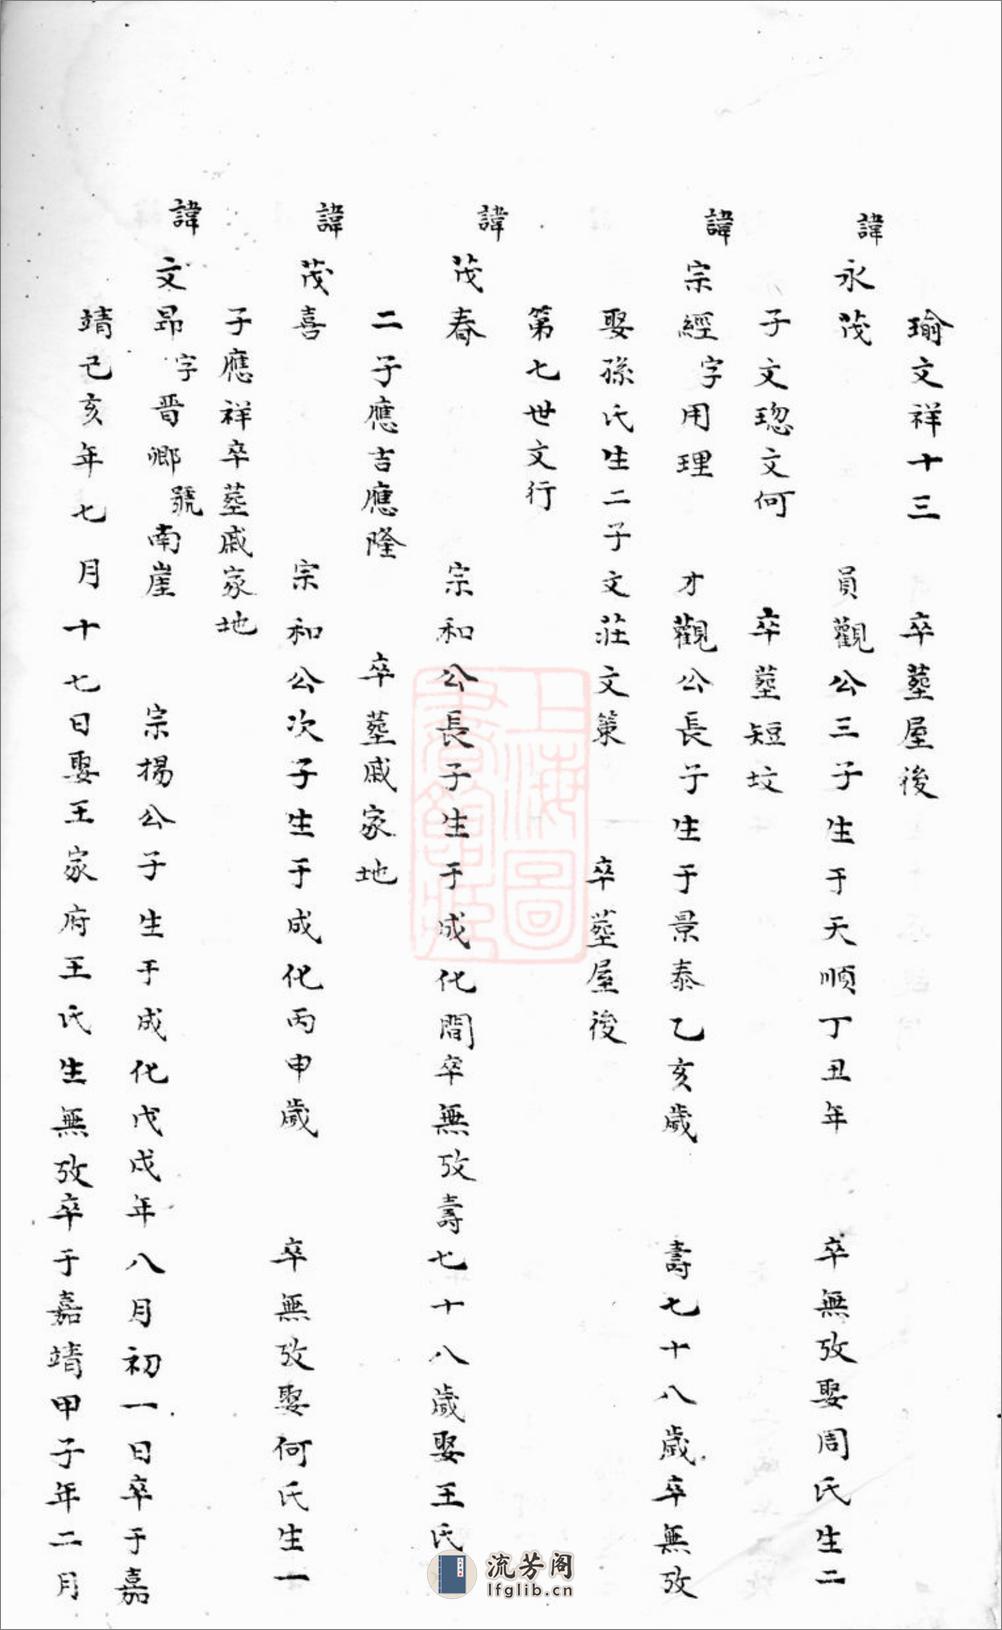 瑜文祥十三 卒塟屋後
諱永茂 員觀公三子生于天順丁丑年 卒無攷娶周氏生二
子文璁文何 卒塟短坟
諱宗經字用理 才觀公長子生于景泰乙亥歲 壽七十八歲卒無攷
娶孫氏生二子文莊文策 卒塟屋後
第七世文行
諱茂春 宗和公長子生于成化間卒無攷壽七十八歲娶王氏
二子應吉應隆 卒塟戚家地
諱茂喜 宗和公次子生于成化丙申歲 卒無攷娶何氏生一
子應祥卒塟戚家地
諱文昂字晋卿號南崖 宗揚公子生于成化戊戌年八月初一日卒于嘉
靖己亥年七月十七日娶王家府王氏生無攷卒于嘉靖甲子年二月
上海圖書館藏
流芳阁
lfglib.cn